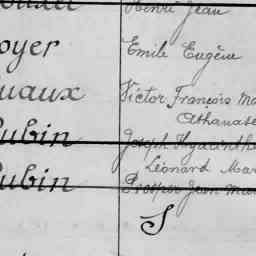 Henri Jean
oyer Emile Eugène
uaux Victor François Ma
Athanase
ubin Joseph Hyacinthe
Léonard Mar
ubin Prosper Jean Ma
S